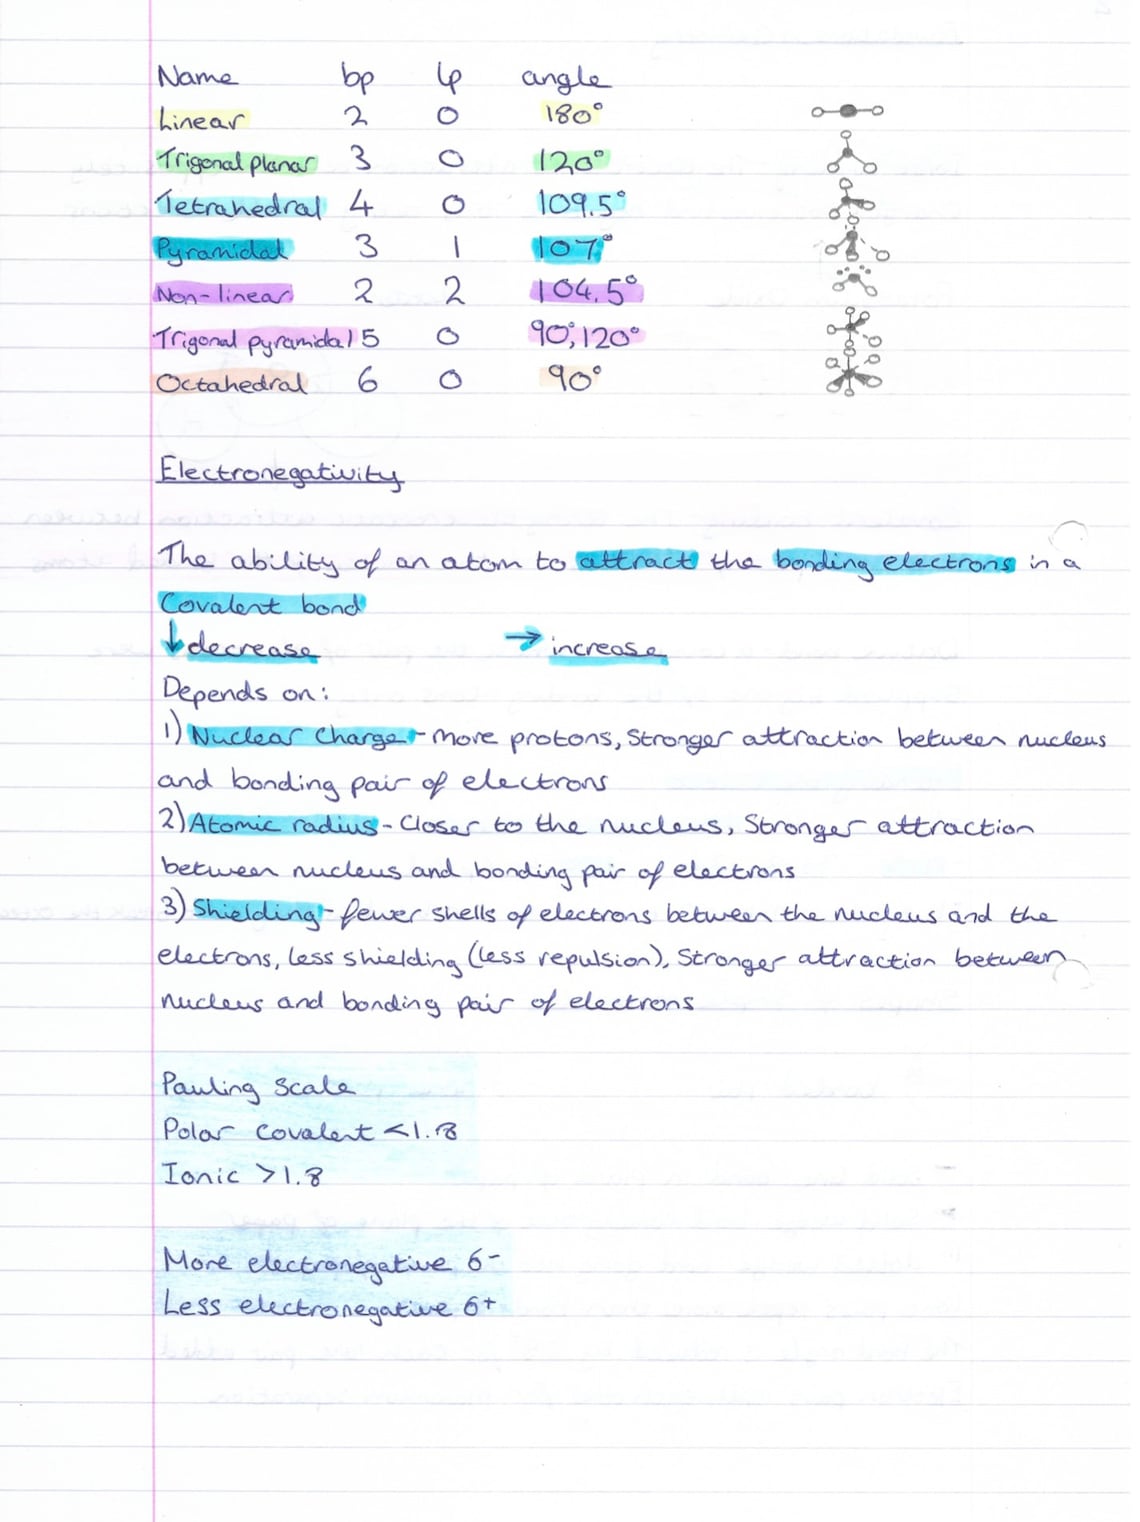 Name bp lp angle
Linear 2 0 180°
Trigonal planar 3 0 120°
Tetrahedral 4 0 109.5°
Pyramidal 3 1 107°
Non-linear 2 2 104.5°
Trigonal pyramidal 5 0 90°,120°
Octahedral 6 0 90°
Electronegativity
The ability of an atom to attract the bonding electrons in a
Covalent bond
↓ decrease → increase
Depends on:
1) Nuclear Charge - More protons, Stronger attraction between nucleus
and bonding pair of electrons
2) Atomic radius - Closer to the nucleus, Stronger attraction
between nucleus and bonding pair of electrons
3) Shielding - fewer shells of electrons between the nucleus and the
electrons, less shielding (less repulsion), Stronger attraction between
nucleus and bonding pair of electrons
Pauling Scale
Polar covalent <1.8
Ionic >1.8
More electronegative δ-
Less electronegative δ+